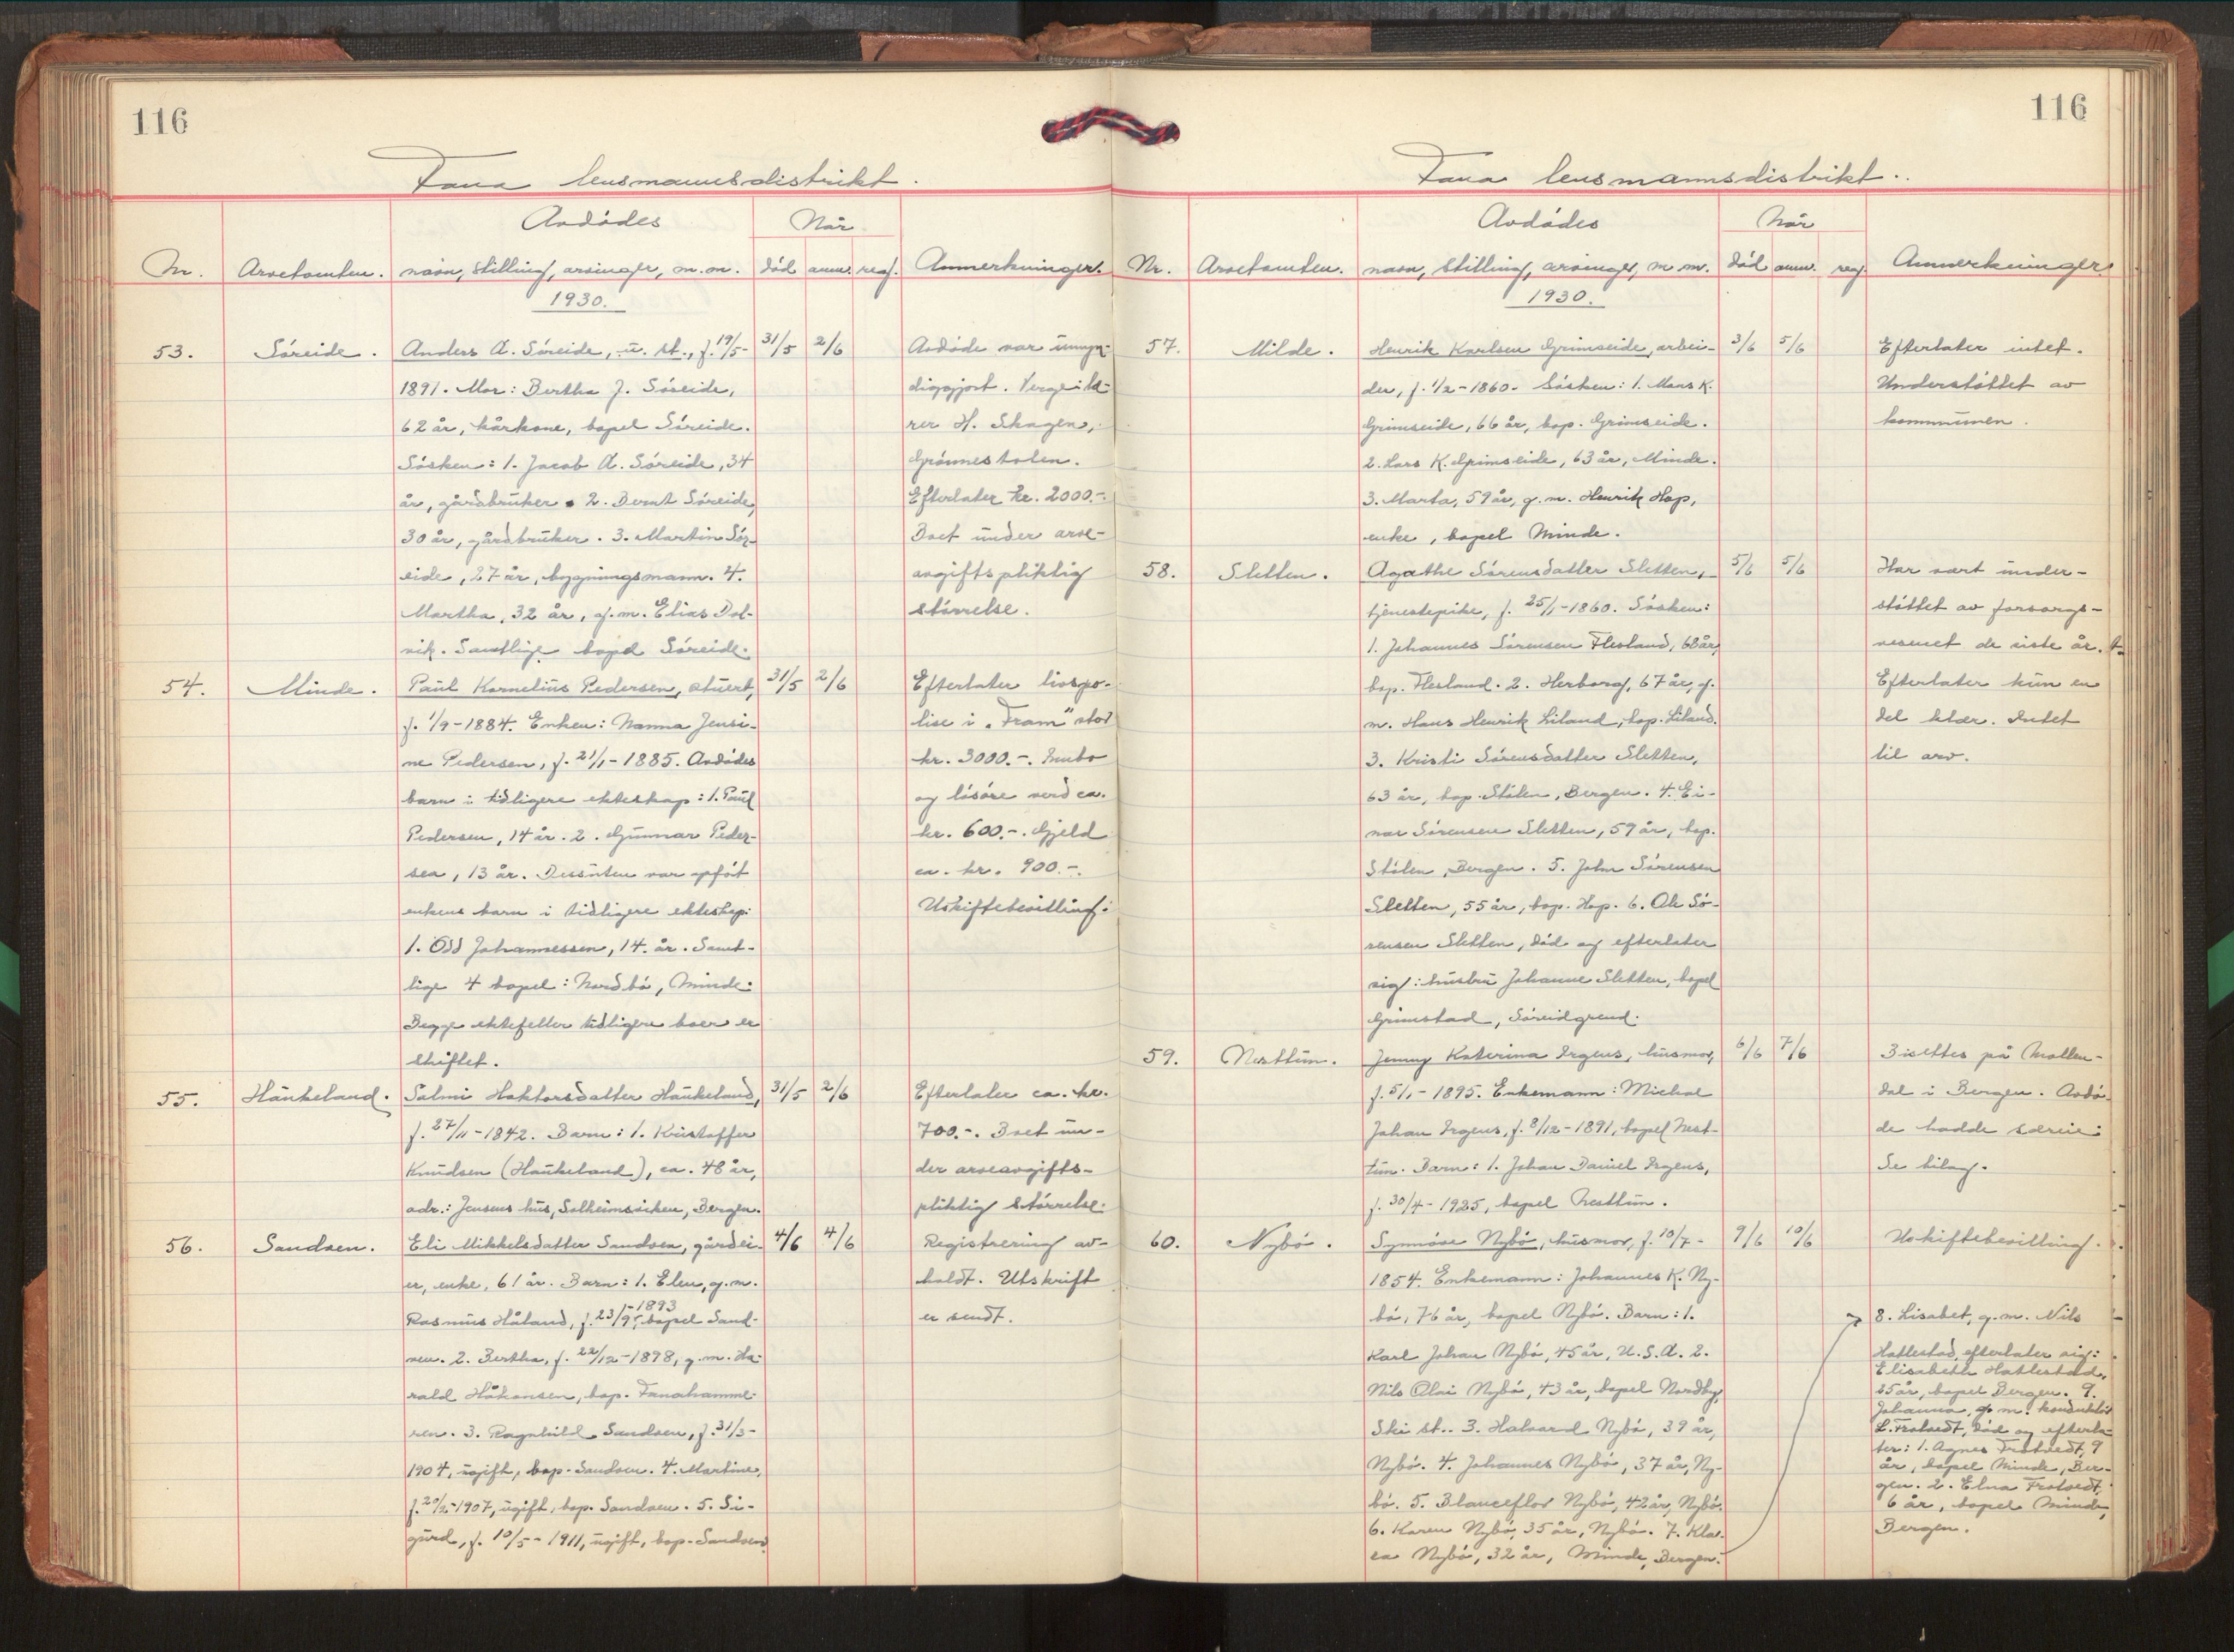 116
Fana lensmannsdistrikt.
Avdødes
Når
Nr. Arvetomten. navn, stilling, arvinger, m.m. død anm. reg. Anmerkninger.
1930.
53. Søreide. Anders A. Søreide, u. st., f. 19/5- 31/5 2/6 Avdøde var umyn-
1891. Mor: Bertha J. Søreide, diggjort. Verge: læ-
62 år, kårkone, bopel Søreide. rer H. Skagen,
Søsken: 1. Jacob A. Søreide, 34 Grønnestølen.
år, gårdbruker. 2. Bernt Søreide, Efterlater kr. 2000.-.
30 år, gårdbruker. 3. Martin Sør- Boet under arve-
eide, 27 år, bygningsmann. 4. avgiftspliktig
Martha, 32 år, g.m. Elias Dol- størrelse.
vik. Samtlige bopel Søreide.
54. Minde. Paul Kornelius Pedersen, stuert, 31/5 2/6 Efterlater livspo-
f. 1/9-1884. Enken: Nanna Jensi- lise i "Fram" stor
ne Pedersen, f. 21/1-1885. Avdødes kr. 3000.-. Innbo
barn i tidligere ekteskap: 1. Paul og løsøre verd ca.
Pedersen, 14 år. 2. Gunnar Peder- kr. 600.-. Gjeld
sen, 13 år. Dessuten var opføt ca. kr. 900.-.
enkens barn i tidligere ekteskap: Uskiftebevilling.
1. Odd Johannessen, 14 år. Samt-
lige 4 bopel: Nordbø, Minde.
Begge ektefeller tidligere boer er
skiftet.
55. Haukeland. Salmi Haktorsdatter Haukeland, 31/5 2/6 Efterlater ca. kr.
f. 27/11-1842. Barn: 1. Kristoffer 700.-. Boet un-
Knudsen (Haukeland), ca. 48 år, der arveavgifts-
adr.: Jensens hus, Solheimsviken, Bergen. pliktig størrelse.
56. Sandven. Eli Mikkelsdatter Sandven, gårdei- 4/6 4/6 Registrering av-
er, enke, 61 år. Barn: 1. Elen, g.m. holdt. Utskrift
Rasmus Håland, f. 23/9-1893, bopel Sand- er sendt.
ven. 2. Bertha, f. 22/12-1898, g.m. Ha-
rald Håkonsen, bop. Fanahamme-
ren. 3. Ragnhild Sandven, f. 31/3-
1904, ugift, bop. Sandven. 4. Martine,
f. 20/2-1907, ugift, bop. Sandven. 5. Si-
gurd, f. 10/5-1911, ugift, bop. Sandven.
116
Fana lensmannsdistrikt.
Avdødes
Når
Nr. Arvetomten. navn, stilling, arvinger, m.m. død anm. reg. Anmerkninger.
1930.
57. Milde. Henrik Karlsen Grimseide, arbei- 3/6 5/6 Efterlater intet.
der, f. 1/2-1860. Søsken: 1. Mons K. Understøttet av
Grimseide, 66 år, bop. Grimseide. kommunen.
2. Lars K. Grimseide, 63 år, Minde.
3. Marta, 59 år, g.m. Henrik Hop,
enke, bopel Minde.
58. Sletten. Agathe Sørensdatter Sletten, 5/6 5/6 Har vært under-
tjenestepike, f. 25/1-1860. Søsken: støttet av forsorgs-
1. Johannes Sørensen Flesland, 68 år, vesenet de siste år.
bop. Flesland. 2. Herborg, 67 år, g. Efterlater kun en
m. Hans Henrik Liland, bop. Liland. del klær. Intet
3. Kristi Sørensdatter Sletten, til arv.
63 år, bop. Støten, Bergen. 4. Ei-
nar Sørensen Sletten, 59 år, bop.
Støten, Bergen. 5. John Sørensen
Sletten, 55 år, bop. Hop. 6. Ole Sø-
rensen Sletten, død og efterlater
sig: hustru Johanne Sletten, bopel
Grimstad, Søreidgrend.
59. Nesttun. Jenny Katerina Irgens, husmor, 6/6 7/6 Bisettes på Møllen-
f. 5/1-1895. Enkemann: Michal dal i Bergen. Avdø-
Johan Irgens, f. 8/12-1891, bopel Nest- de hadde særeie.
tun. Barn: 1. Johan Daniel Irgens, Se bilag.
f. 30/4-1925, bopel Nesttun.
60. Nybø. Synnøve Nybø, husmor, f. 10/7- 9/6 10/6 Uskiftebevilling.
1854. Enkemann: Johannes K. Ny-
bø, 76 år, bopel Nybø. Barn: 1.
Karl Johan Nybø, 45 år, U.S.A. 2.
Nils Olai Nybø, 43 år, bopel Nordby,
Ski st.. 3. Halvard Nybø, 39 år,
Nybø. 4. Johannes Nybø, 37 år, Ny-
bø. 5. Blanceflor Nybø, 42 år, Nybø.
6. Karen Nybø, 35 år, Nybø. 7. Kla-
ra Nybø, 32 år, Minde, Bergen.
8. Lisabet, g.m. Nils
Hatlestad, efterlater sig:
Elisabeth Hatlestad,
15 år, bopel Bergen. 9.
Johanna, g.m. konduktør
L. Frotvedt, død og efterla-
ter: 1. Agnes Frotvedt, 9
år, bopel Minde, Ber-
gen. 2. Elna Frotvedt,
6 år, bopel Minde,
Bergen.